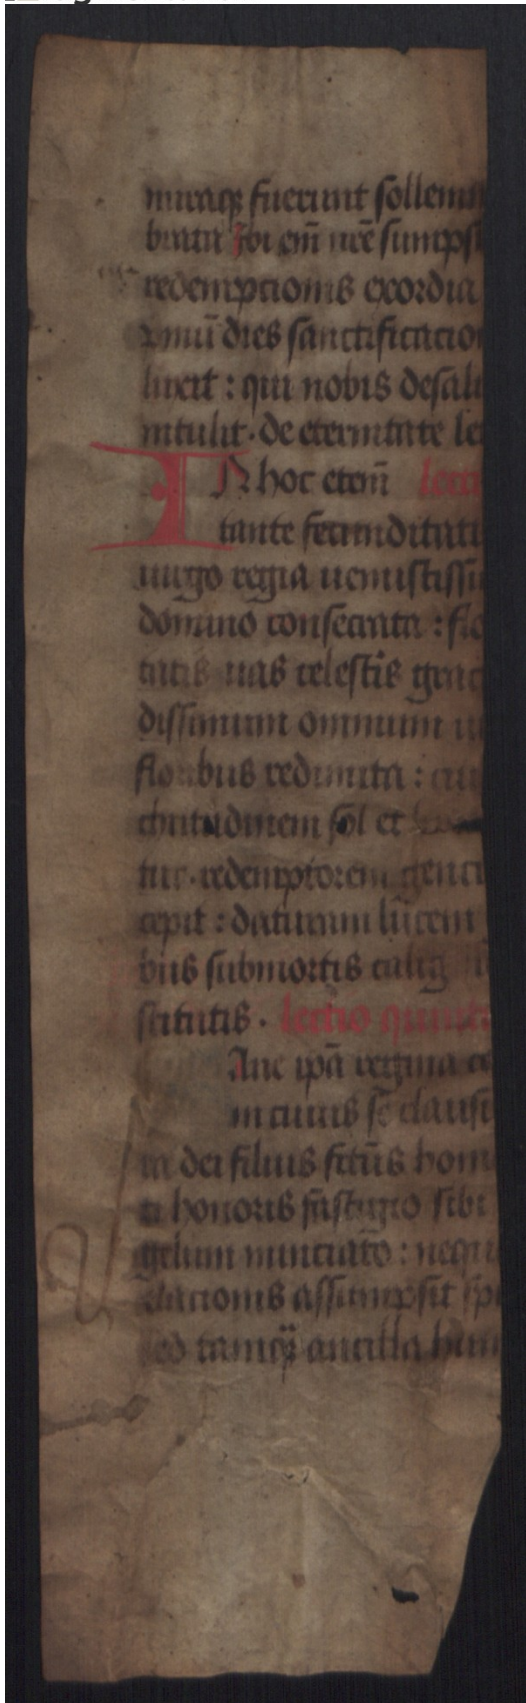 miraq; fuerunt sollemn
brata ibi em̄ nr̄e sumps
redemptionis exordia
dies sanctificacio
luxit : qui nobis desalu
intulit . de eternitate le
IN hoc etem̄ lecti
tante fecunditati
uirgo regia uenustissi
domino consecrata : flo
tatis uas celestis grac
dissimum omnium ui
floribus redimita : cui
chritudinem sol et
tur . redemptorem genti
cepit : daturum lucem
bus submortis calig
scitutis . lectio quinta
Anc ip̄a regina ce
in cuius se clausi
ta dei filius fc̄us hom
a honoris fastigio sibi
gelum nunciato : nequ
elacionis assumpsit spi
ed tamq̄ ancilla hum